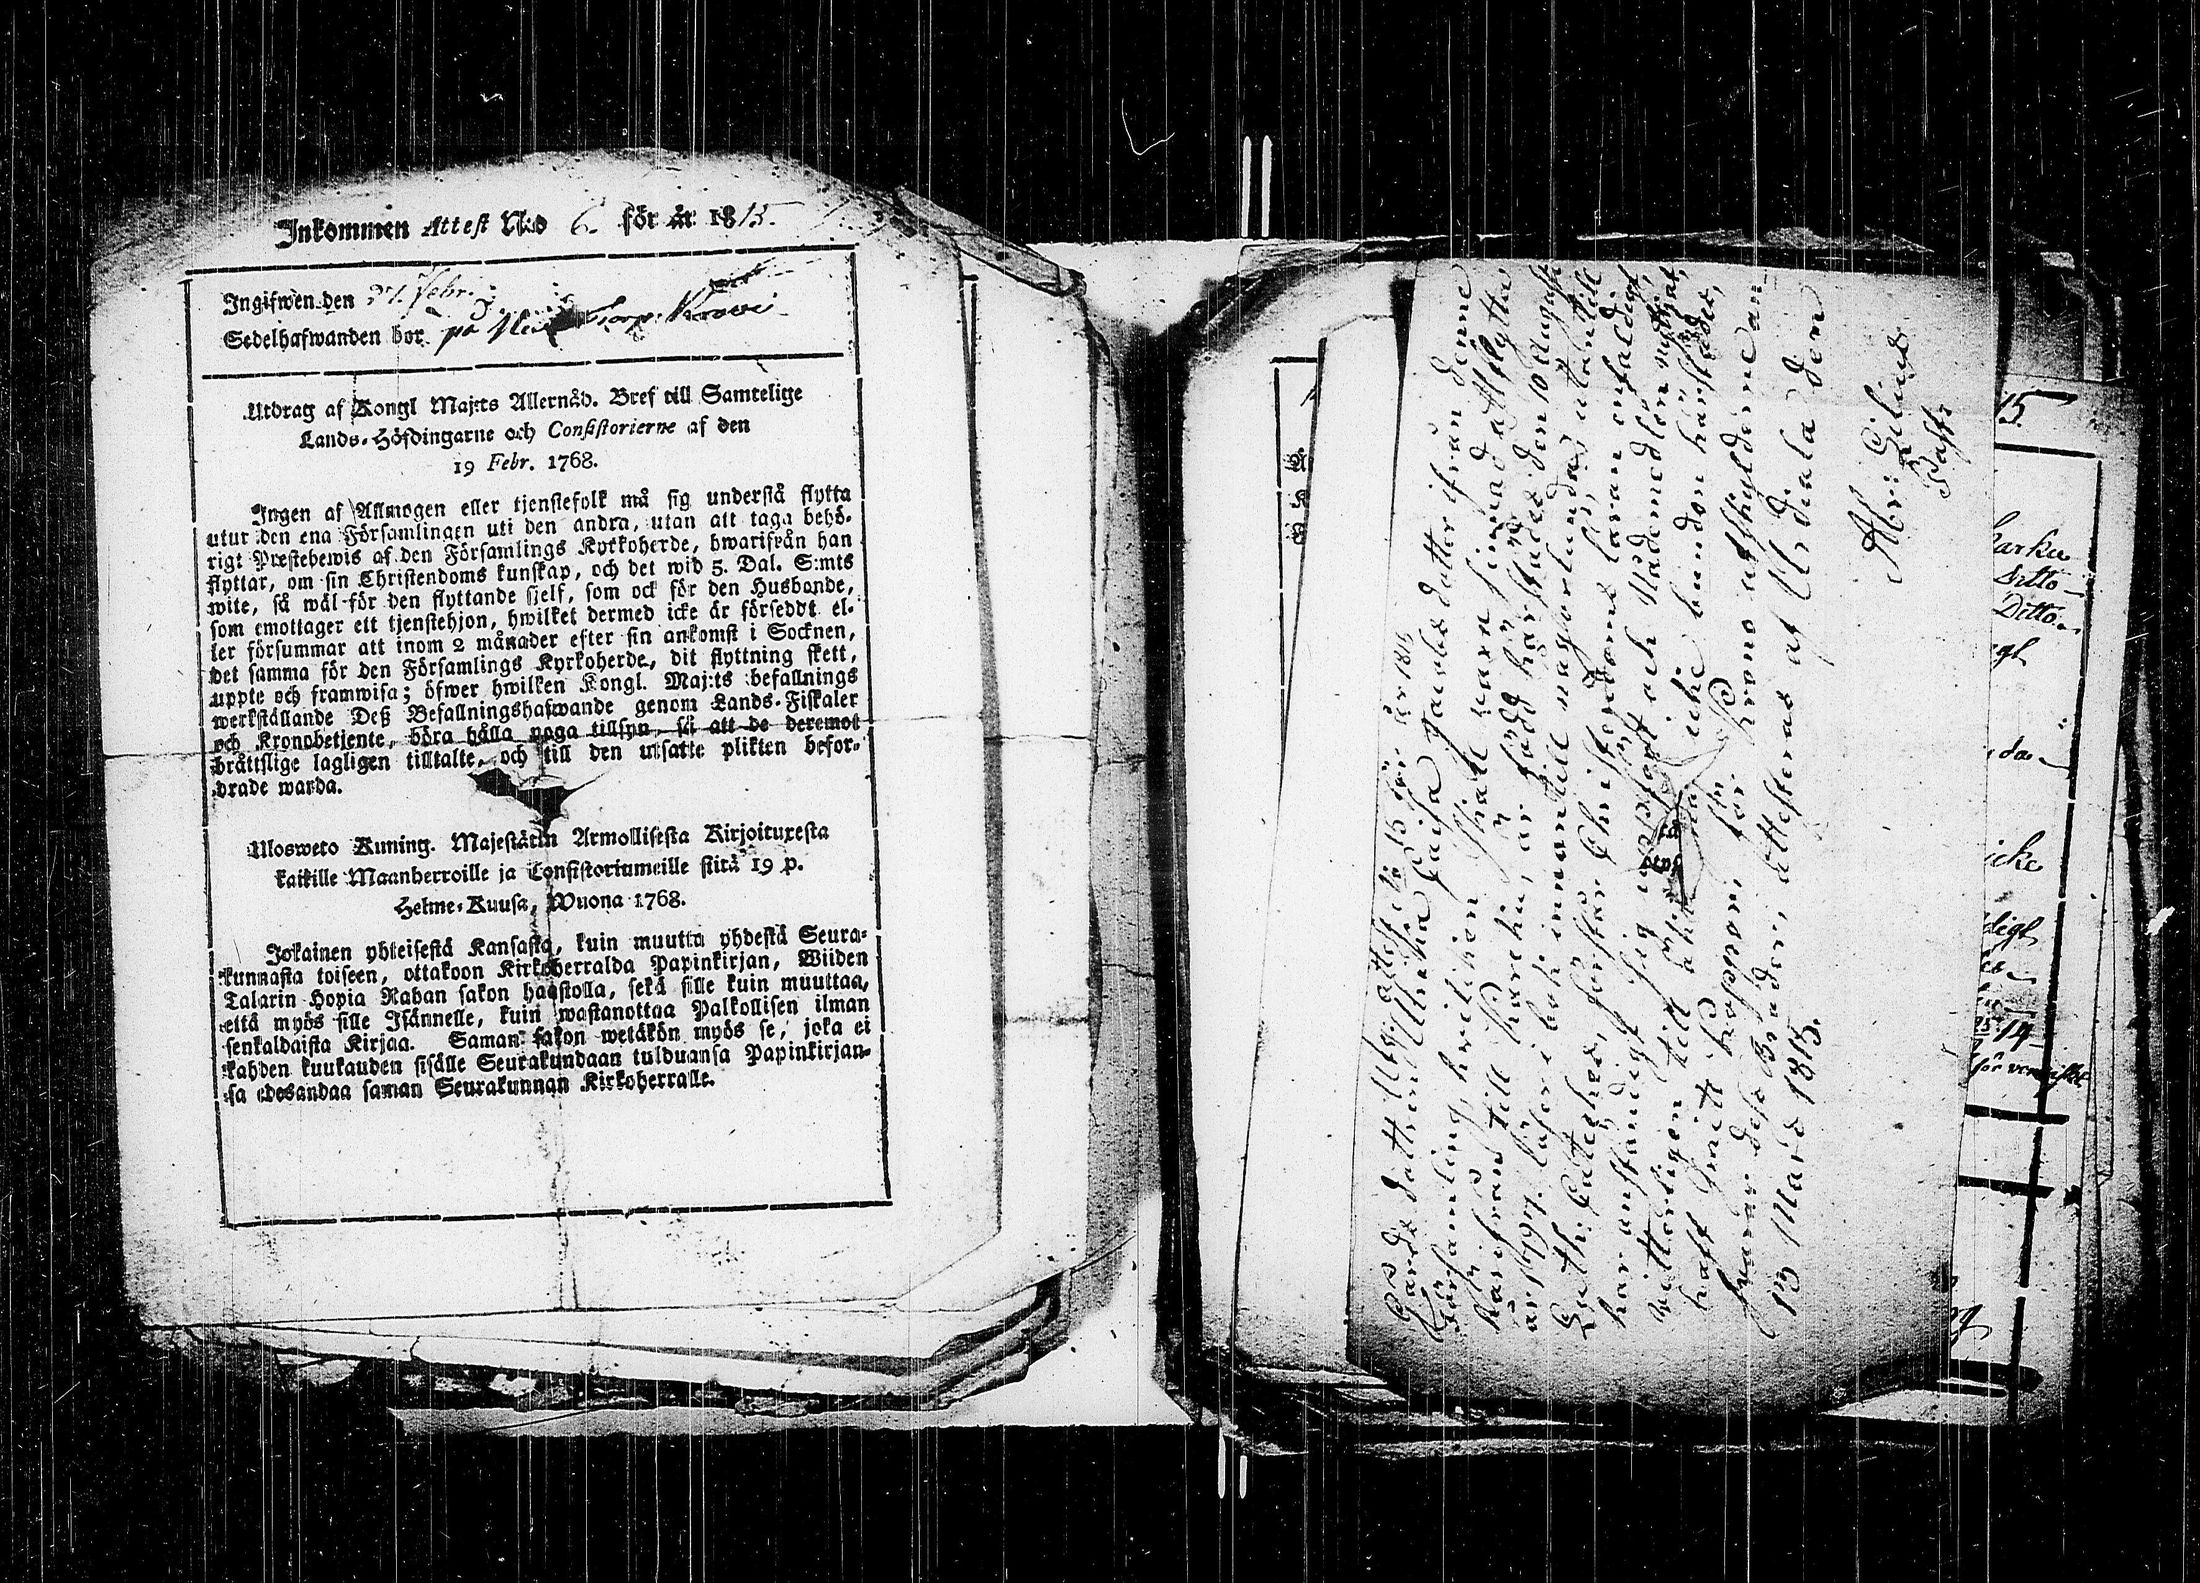 Inkommen Attest N:o 6. för år 1815.
Ingifwen den 27. Febr.
Sedelhafwanden bor på
Utdrag af Kongl Maj:ts Allernåd. Bref till Samtelige
Lands-Höfdingarne och Consistorierne af den
19 Febr. 1768.
Ingen af Allmogen eller tjenstefolk må sig understå flytta
utur den ena Församlingen uti den andra, utan att taga behö-
rigt Præstebewis af den Församlings Kyrkoherde, hwarifrån han
flyttar, om sin Christendoms kunskap, och det wid 5. Dal. S:mts
wite, så wäl för den flyttande sjelf, som ock för den Husbonde,
som emottager ett tjenstehjon, hwilket dermed icke är försedt el-
ler försummar att inom 2 månader efter sin ankomst i Socknen,
det samma för den Församlings Kyrkoherde, dit flyttning skett,
uppte och framwisa; öfwer hwilken Kongl. Maj:ts befallnings
werkställande Deß Befallningshafwande genom Lands-Fiskaler
och Kronobetjente, böra hålla noga tillsyn, så att de deremot
bråttslige lagligen tilltalte, och till den utsatte plikten befor-
drade warda.
Ulosweto Kuning. Majestätin Armollisesta Kirjoituxesta
kaikille Maanherroille ja Consistoriumeille siitä 19 p.
Helme-Kuusa, Wuona 1768.
Jokainen yhteisestä Kansasta, kuin muutta yhdestä Seura-
kunnasta toiseen, ottakoon Kirkoherralda Papinkirjan, Wiiden
Talarin Hopia Rahan sakon haastolla, sekä sille kuin muuttaa,
että myös sille Isännelle, kuin wastanottaa Palkollisen ilman
senkaldaista Kirjaa. Saman sakon wetäkön myös se, joka ei
kahden kuukauden sisälle Seurakundaan tulduansa Papinkirjan-
sa edesandaa saman Seurakunnan Kirkoherralle.
Utg. attest N:o 15 för år 1815
Gårds dottren Ulrika Caisa Jacobs dotter ifrån denne
Församling, hvilken skall vara sinnad att flytta
härifrån till Karcku, är född härstädes den 10 Augusti
år 1797. läser i bok innantill någorlunda, utantill
Luth: Cateches, förstår Christendoms läran enfaldigt,
har anständigt sig uppfört och Nademedlen nyttjat,
vitterligen till äktenskap icke bunden härstädes,
haft koppor, för krono utskylderne an-
svarar dess Broder, attesteras af Urdiala den
13 Mars 1815.
Abr: Lilius
Past:
15
Karku
Ditto
Ditto
14